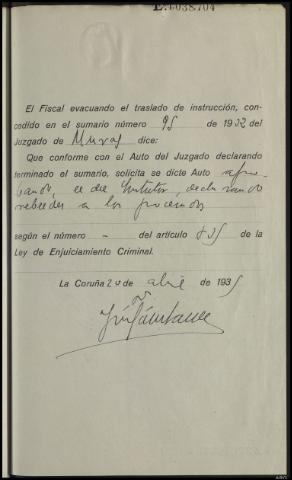 E.4038704
El Fiscal evacuando el traslado de instrucción, con-
cedido en el sumario número 95 de 1932 del
Juzgado de Muros dice:
Que conforme con el Auto del Juzgado declarando
terminado el sumario, solicita se dicte Auto apro-
bando
rebeldes a los procesados
según el número - del artículo 835 de la
Ley de Enjuiciamiento Criminal.
La Coruña 24 de abril de 1935